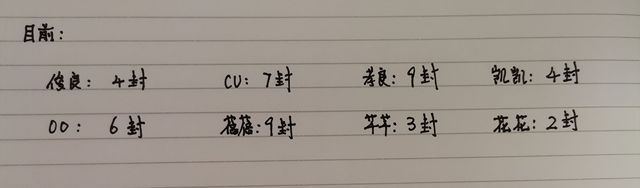 目前：
俊良：4封 CU：7封 孝良：9封 凯凯：4封
OO：6封 蓓蓓：9封 芊芊：3封 花花：2封